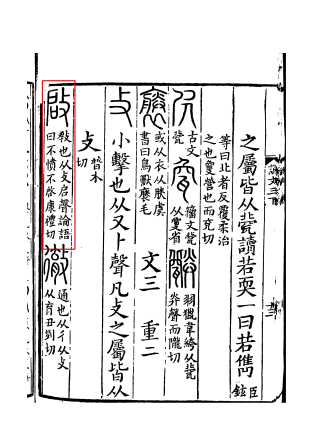 之屬皆从㼱讀若耎一曰若雋臣
鉉
等曰北者反覆柔治
之也夐營也而兗切
古文
㼱
籀文㼱
从夐省
羽獵韋絝从㼱
弅聲而隴切
或从衣从朕虞
書曰鳥獸
毛
文三 重二
攴 小擊也从又卜聲凡攴之屬皆从
攴
普木
切
啟
敎也从攴启聲論語
曰不憤不啟康禮切
徹
通也从彳从攴
从育丑列切